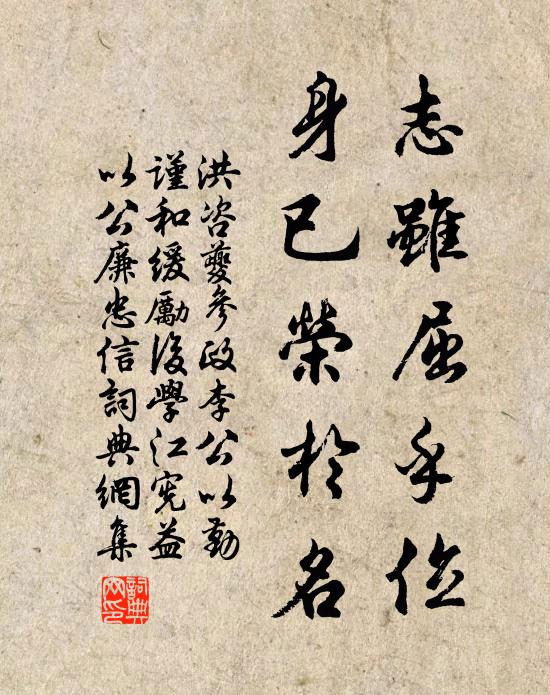 志雖屈乎位
身已榮於名
洪咨夔參政李公以勤
謹和緩勵後學江宪益
以公廉忠信詞典網集
詞典网印